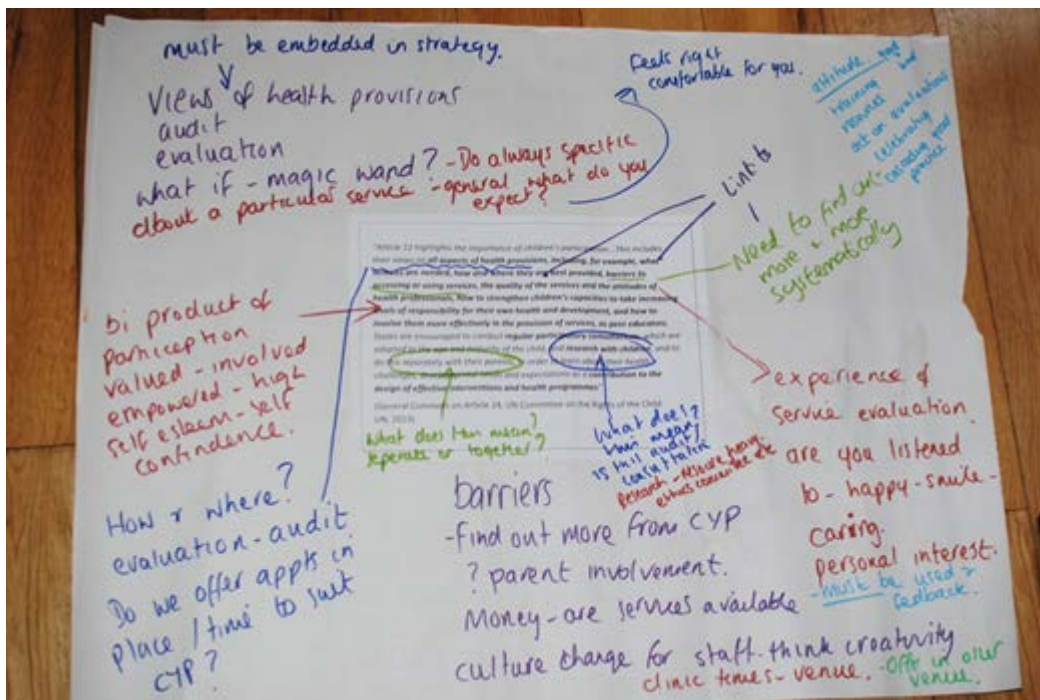 must be embedded in strategy.
Views of health provisions
audit
evaluation
what if - magic wand? - Do always specific
about a particular service - general what do you
expect?
Feels right
comfortable for you.
attitude
training
act on evaluations
celebrating
good
practice
Link to
Need to find
more & more
systematically
"Article 12 highlights the importance of children's participation... This includes
their views on all aspects of health provisions, including, for example, what
services are needed, how and where they are best provided, barriers to
accessing or using services, the quality of the services and the attitudes of
health professionals, how to strengthen children's capacities to take increasing
levels of responsibility for their own health and development, and how to
involve them more effectively in the provision of services, as peer educators.
States are encouraged to conduct regular participatory consultations, which are
adapted to the age and maturity of the child, and research with children, and to
do this separately with their parents
contribution to the
design of effective interventions and health programmes"
(General Comment on Article 24, UN Committee on the Rights of the Child
UN, 2013)
bi product of
partiception
valued - involved
empowered - high
self esteem - self
confidence.
What does this mean?
seperate or together?
What does?
this mean
is this audit?
consultation
Research -
ethics committee
experience of
service evaluation.
are you listened
to - happy - smile -
caring.
personal interest.
- must be used &
feedback.
How & where?
evaluation - audit
Do we offer appts in
place / time to suit
CYP?
barriers
- Find out more from CYP
? parent involvement.
Money - are services available
culture change for staff - think creativity
clinic times - venue. - Offer in other
venue.